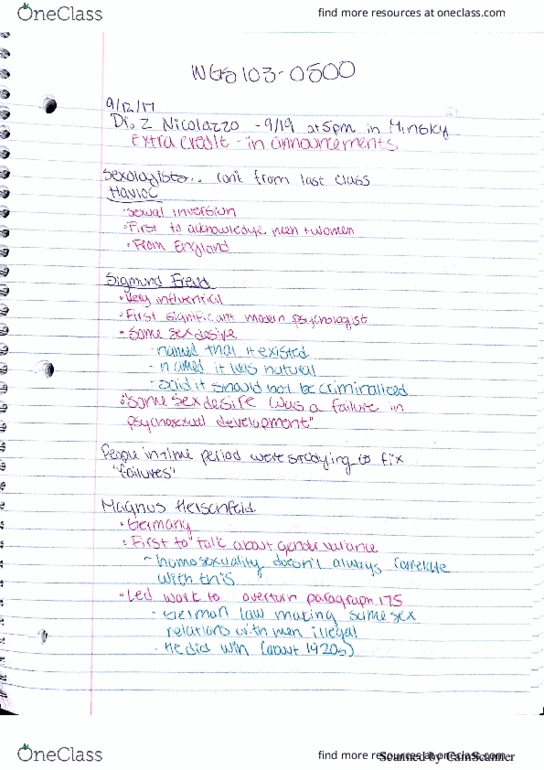 OneClass
find more resources at oneclass.com
WGS 103-0500
9/12/17
Dr. Z Nicolazzo - 9/19 at 5pm in Minsky
Extra credit - in announcements
Sexologists... con't from last class
Havloc
· sexual inversion
· First to acknowledge men + women
· From England
Sigmund Freud
· Very influential
· First significant modern psychologist
· Same sex desire
- named that it existed
- named it was natural
- said it should not be criminalized
· "same sex desire was a failure in
psychosexual development"
People in time period were studying to fix
"failures"
Magnus Hershfeld
· Germany
· First to talk about gender variance
- homosexuality doesn't always correlate
with this
· Led work to overturn paragraph 175
- German law making same sex
relations with men illegal
· He did win (about 1920s)
OneClass
find more resources at oneclass.com
Scanned by CamScanner